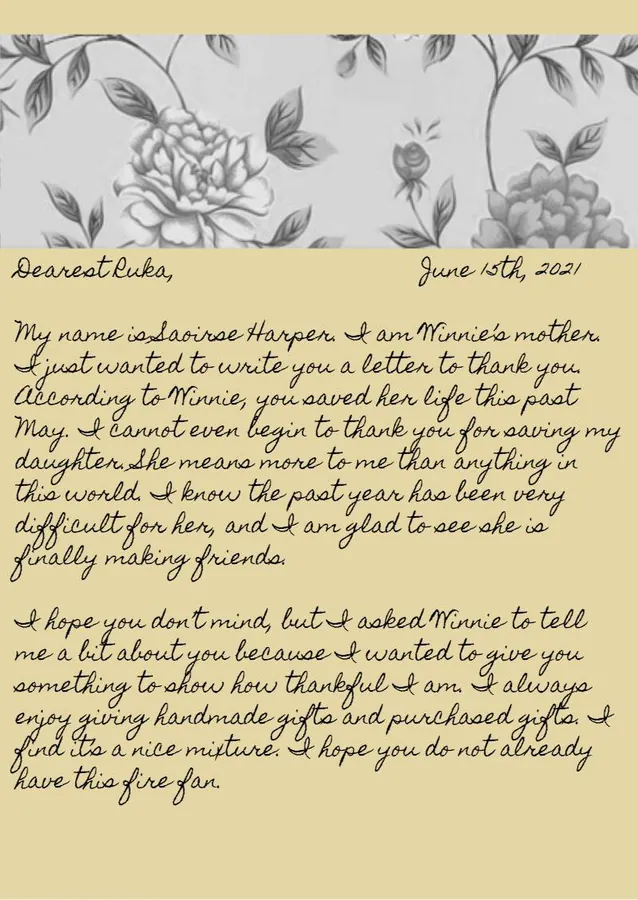 Dearest Ruka, June 15th, 2021
My name is Saoirse Harper. I am Winnie's mother.
I just wanted to write you a letter to thank you.
According to Winnie, you saved her life this past
May. I cannot even begin to thank you for saving my
daughter. She means more to me than anything in
this world. I know the past year has been very
difficult for her, and I am glad to see she is
finally making friends.
I hope you don't mind, but I asked Winnie to tell
me a bit about you because I wanted to give you
something to show how thankful I am. I always
enjoy giving handmade gifts and purchased gifts. I
find it's a nice mixture. I hope you do not already
have this fire fan.